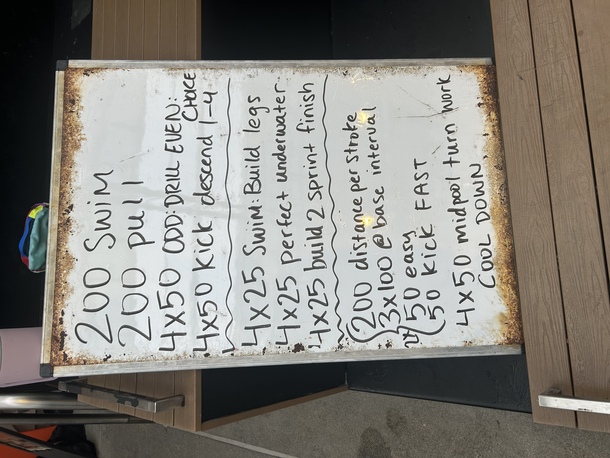 200 SWIM
200 pull
4x50 ODD: DRILL EVEN: CHOICE
4x50 kick descend 1-4
4x25 SWIM: Build legs
4x25 perfect underwater
4x25 build 2 sprint finish
200 distance per stroke
3x100 @ base interval
2x 50 easy
50 KICK FAST
4x50 midpool turn work
COOL DOWN!